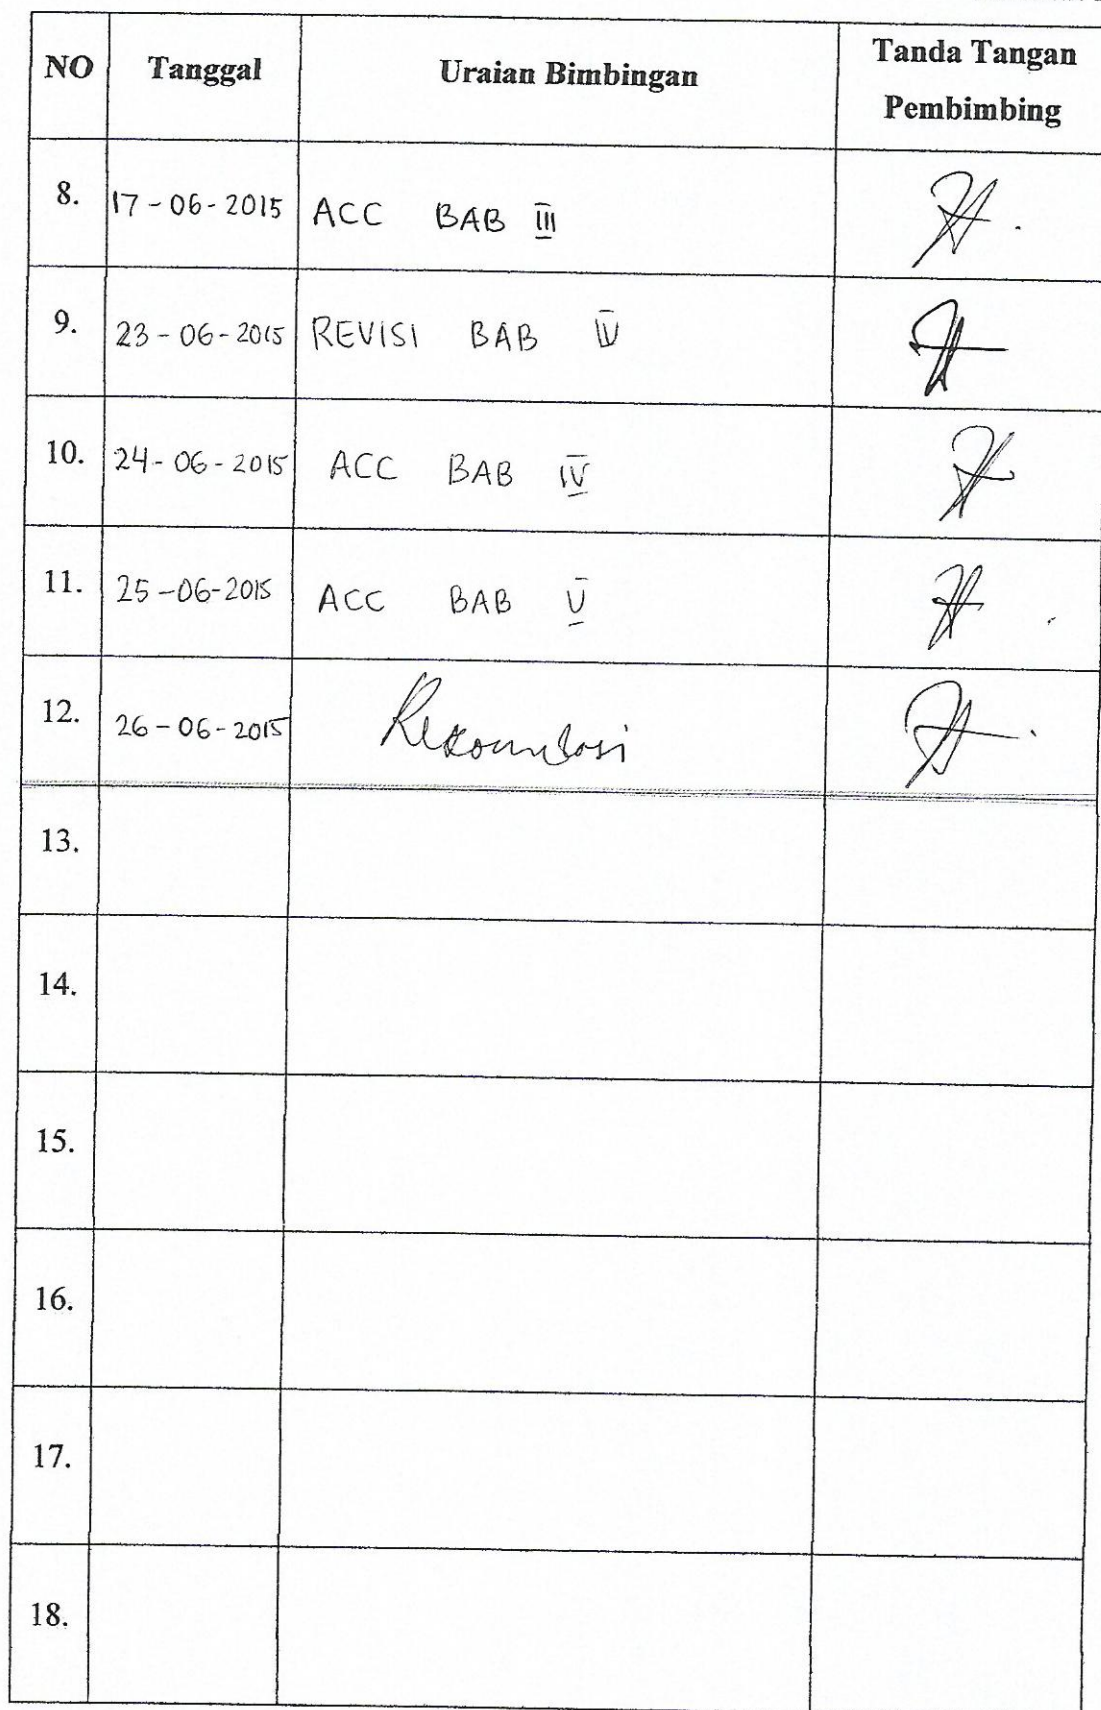 NO Tanggal Uraian Bimbingan Tanda Tangan
Pembimbing
8. 17-06-2015 ACC BAB III
9. 23-06-2015 REVISI BAB IV
10. 24-06-2015 ACC BAB IV
11. 25-06-2015 ACC BAB V
12. 26-06-2015
13.
14.
15.
16.
17.
18.